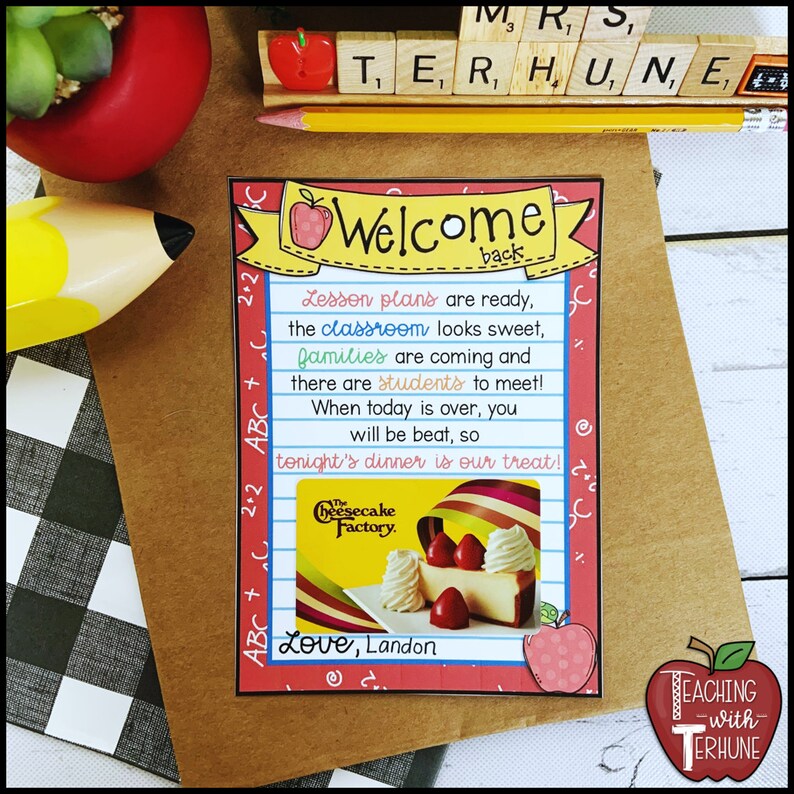 MRS
TERHUNE
Welcome
back
Lesson plans are ready,
the classroom looks sweet,
families are coming and
there are students to meet!
When today is over, you
will be beat, so
tonight's dinner is our treat!
The
Cheesecake
Factory.
Love, Landon
2+2
ABC +
2+2
ABC +
TEACHING
with
TERHUNE